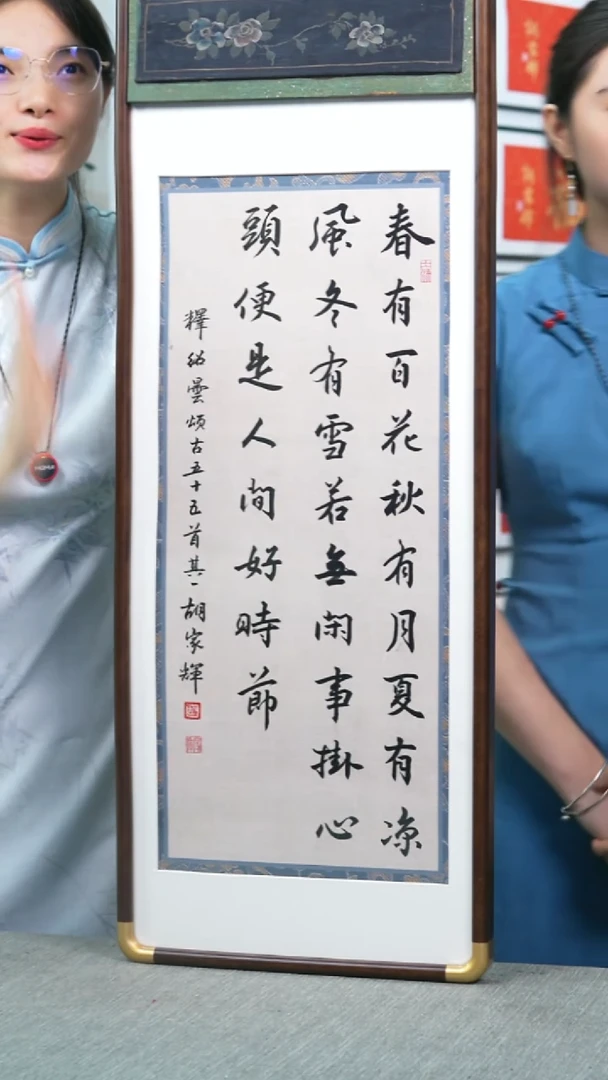 春有百花秋有月夏有凉
風冬有雪若無閑事掛心
頭便是人间好時節
釋紹曇頌古五十五首其一胡家輝